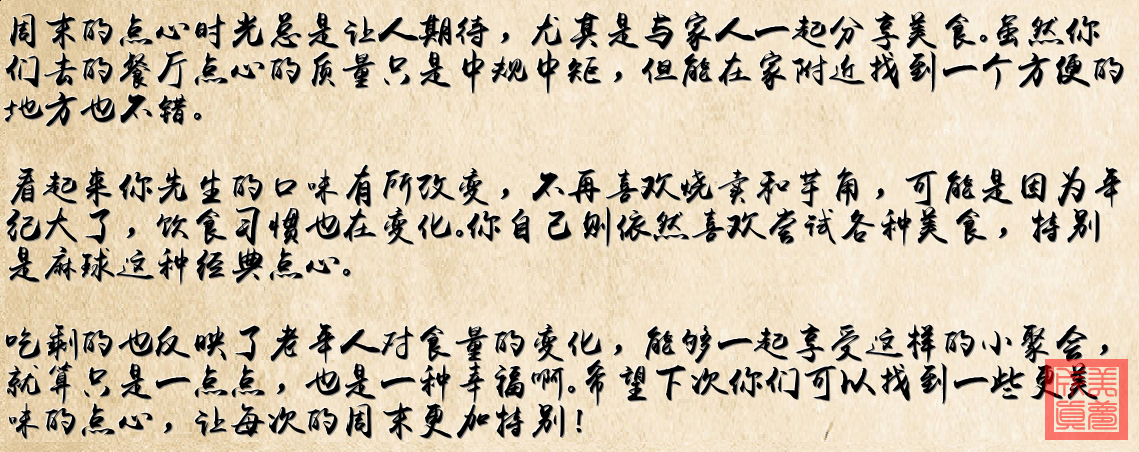 周末的点心时光总是让人期待，尤其是与家人一起分享美食。虽然你
们去的餐厅点心的质量只是中规中矩，但能在家附近找到一个方便的
地方也不错。
看起来你先生的口味有所改变，不再喜欢烧卖和芋角，可能是因为年
纪大了，饮食习惯也在变化。你自己则依然喜欢尝试各种美食，特别
是麻球这种经典点心。
吃剩的也反映了老年人对食量的变化，能够一起享受这样的小聚会，
就算只是一点点，也是一种幸福啊。希望下次你们可以找到一些更美
味的点心，让每次的周末更加特别！